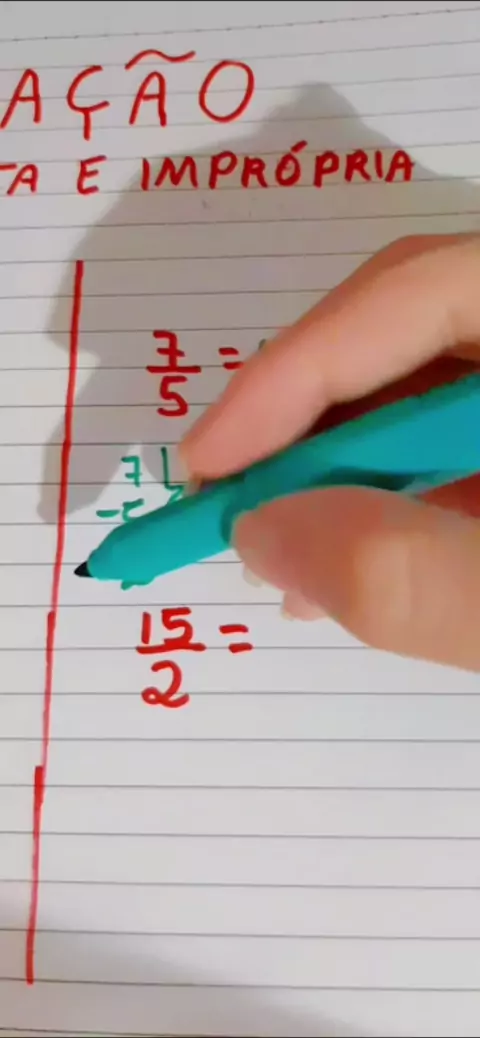 AÇÃO
TA E IMPRÓPRIA
7
5 =
7
15
2 =